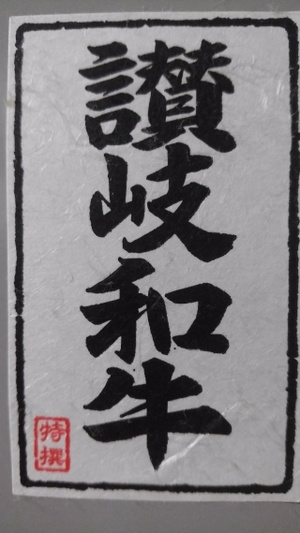 讃岐和牛
特撰